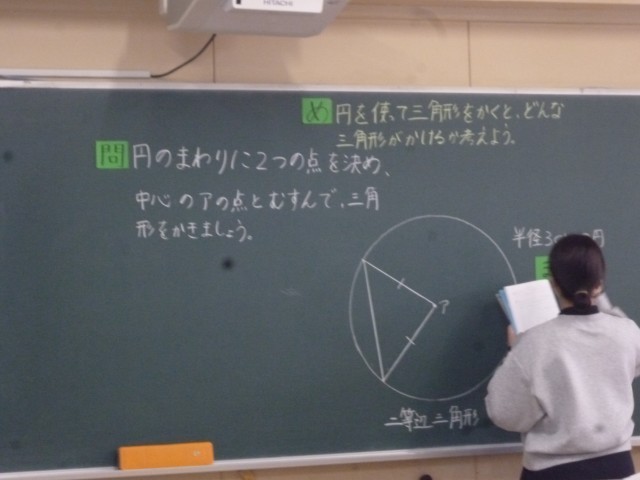 HITACHI
め 円を使って三角形をかくと、どんな
三角形がかけるか考えよう。
問 円のまわりに2つの点を決め、
中心のアの点とむすんで、三角
形をかきましょう。
半径3
円
ア
二等辺三角形